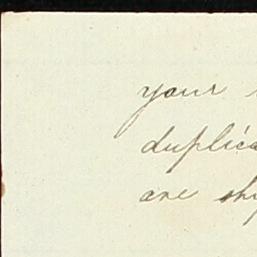 your
duplica
are sh